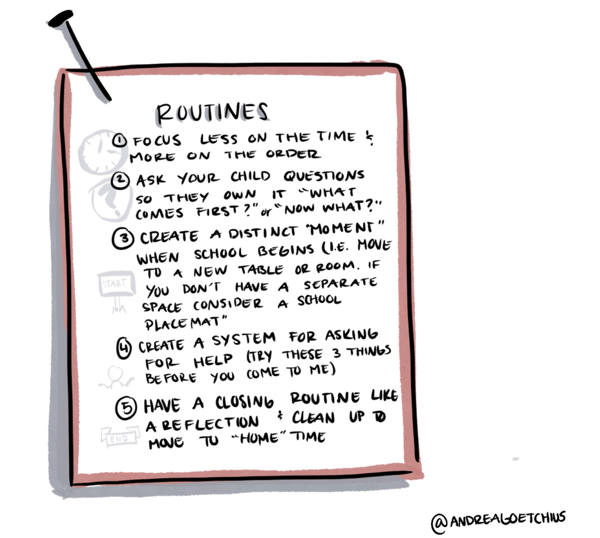 ROUTINES
① FOCUS LESS ON THE TIME &
MORE ON THE ORDER
② ASK YOUR CHILD QUESTIONS
SO THEY OWN IT "WHAT
COMES FIRST?" or "NOW WHAT?"
③ CREATE A DISTINCT "MOMENT"
WHEN SCHOOL BEGINS (I.E. MOVE
TO A NEW TABLE OR ROOM. IF
YOU DON'T HAVE A SEPARATE
SPACE CONSIDER A SCHOOL
PLACEMAT"
START
④ CREATE A SYSTEM FOR ASKING
FOR HELP (TRY THESE 3 THINGS
BEFORE YOU COME TO ME)
⑤ HAVE A CLOSING ROUTINE LIKE
A REFLECTION & CLEAN UP TO
MOVE TO "HOME" TIME
END
@ANDREAGOETCHIUS